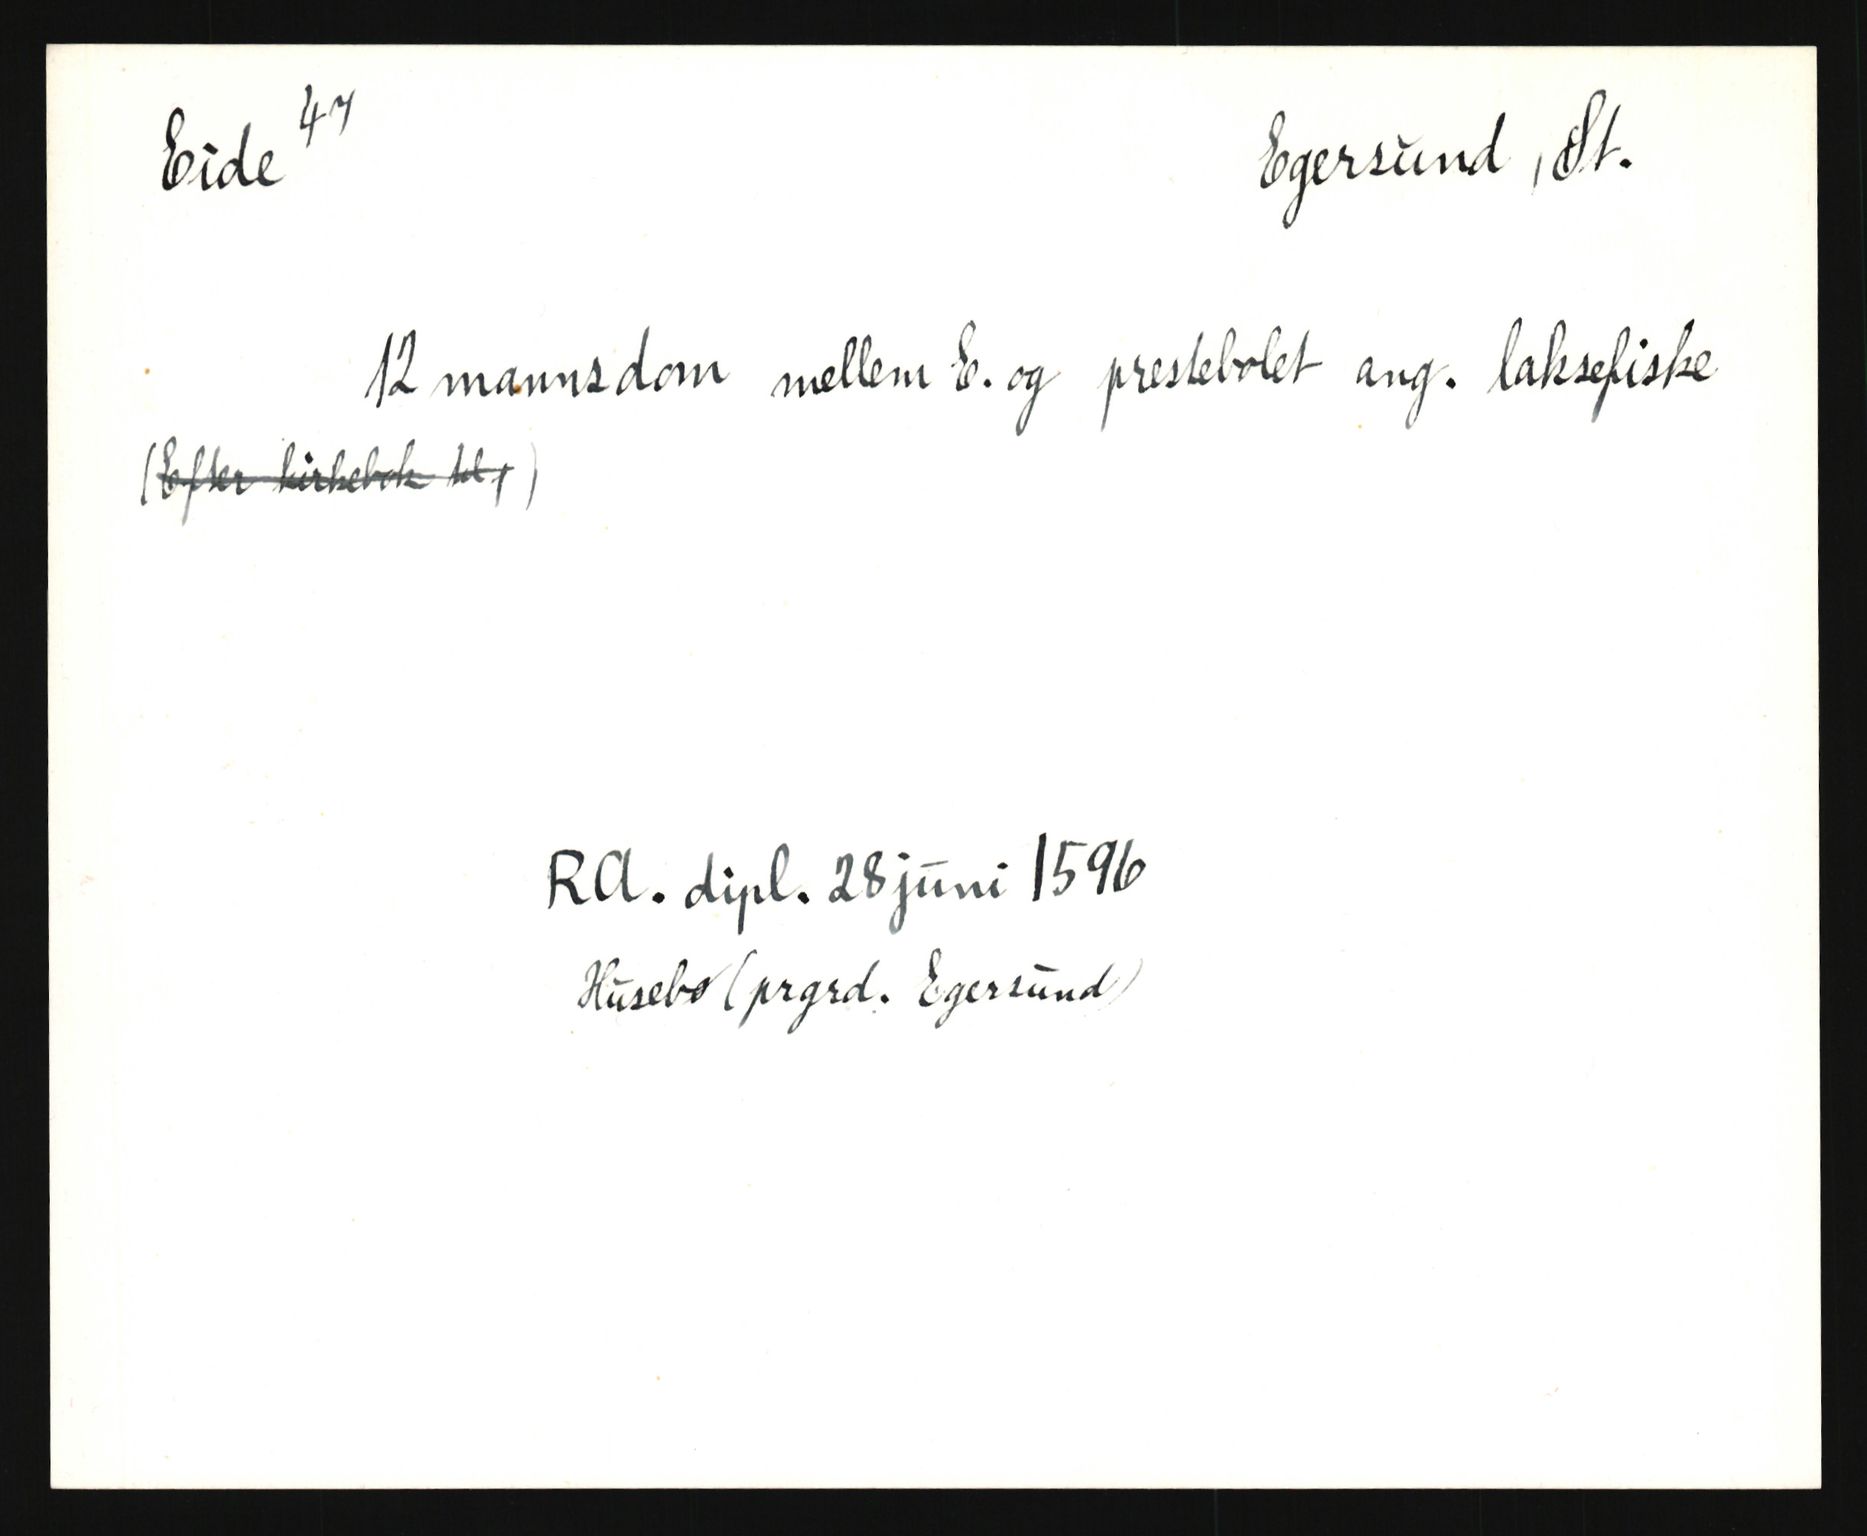 Eide 47 Egersund, St.
12 mannsdom mellem E. og prestebolet ang. laksefiske
(Efter kirkebok)
RA. dipl. 28 juni 1596
Husebø (prgrd. Egersund)